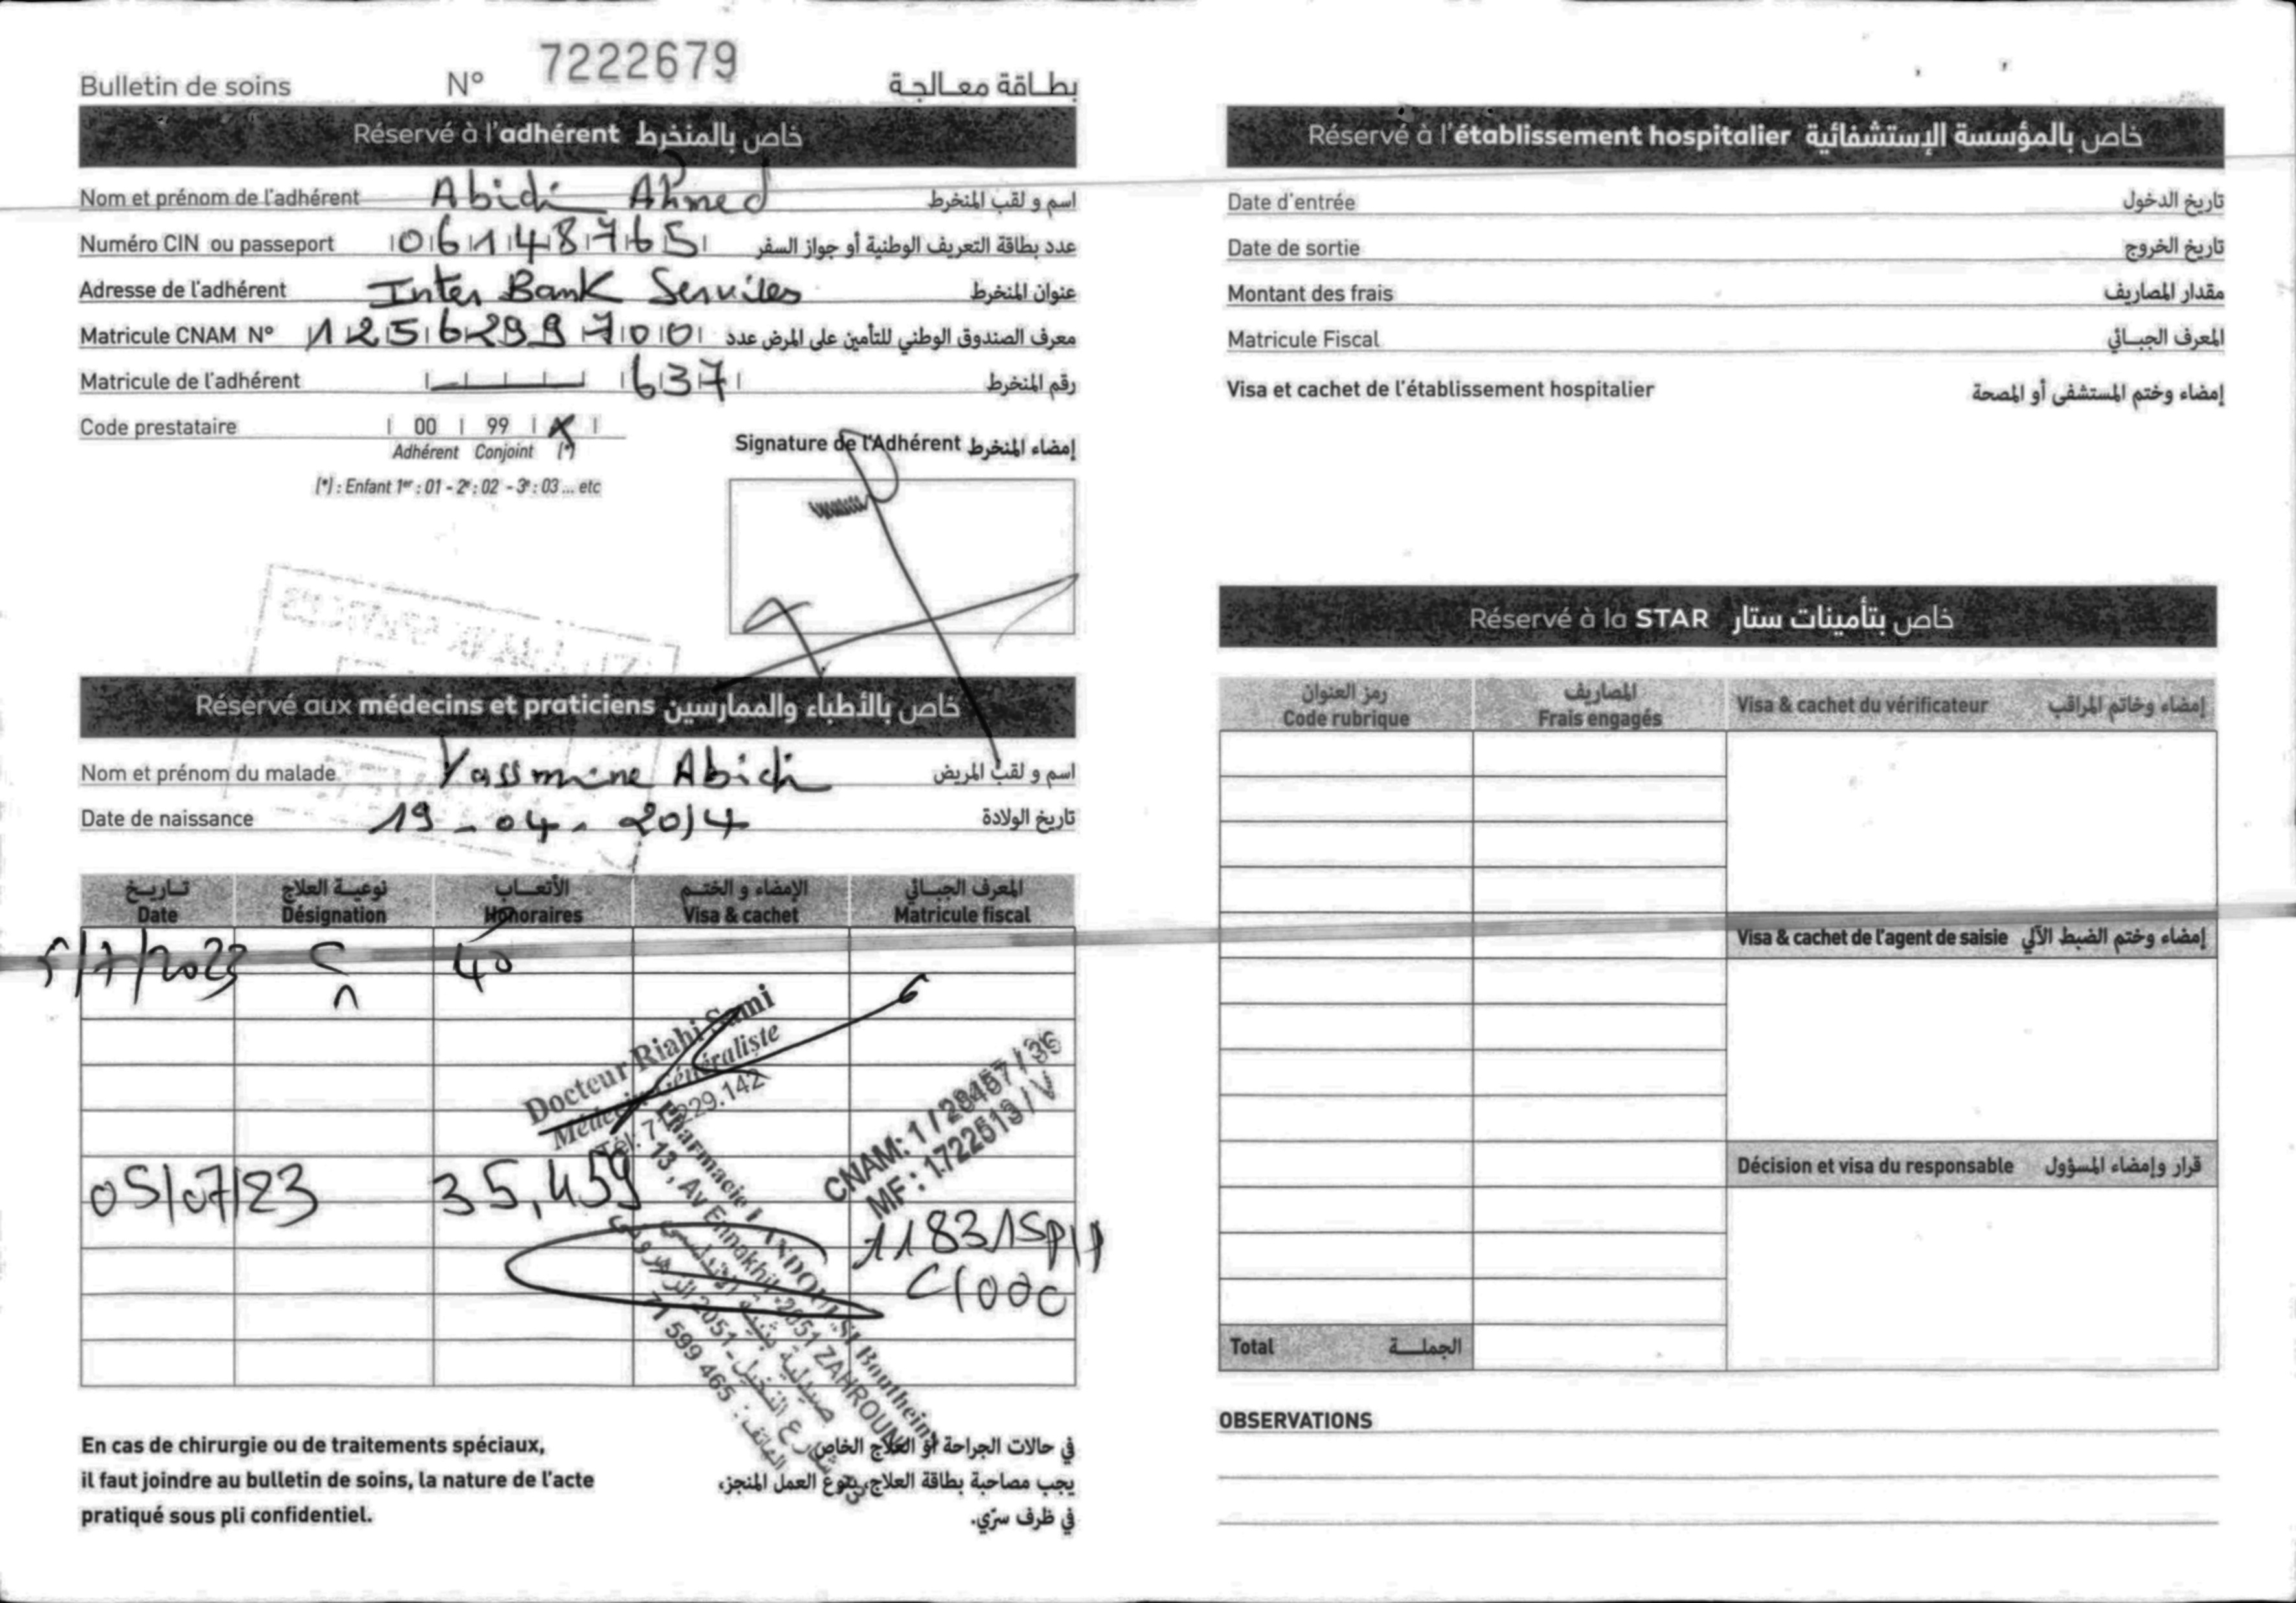 Bulletin de soins N° 7222679 بطاقة معالجة
Réservé à l'adhérent خاص بالمنخرط
Nom et prénom de l'adhérent Abidi Ahmed اسم و لقب المنخرط
Numéro CIN ou passeport 06148765 عدد بطاقة التعريف الوطنية أو جواز السفر
Adresse de l'adhérent Inter Bank Services عنوان المنخرط
Matricule CNAM N° 125629970 0 معرف الصندوق الوطني للتأمين على المرض عدد
Matricule de l'adhérent 637 رقم المنخرط
Code prestataire 00 99 X
Adhérent Conjoint (*)
(*) : Enfant 1er : 01 - 2e : 02 - 3e : 03 ... etc
Signature de l'Adhérent إمضاء المنخرط
Réservé aux médecins et praticiens خاص بالأطباء والممارسين
Nom et prénom du malade Yassmine Abidi اسم و لقب المريض
Date de naissance 19-04-2014 تاريخ الولادة
تاريخ نوعية العلاج الأتعاب الإمضاء و الختم المعرف الجبائي
Date Désignation Honoraires Visa & cachet Matricule fiscal
5/7/2023 C 40
Docteur Riahi Sami
Médecin Généraliste
Tél: 71.229.142
CNAM: 1 / 28457 / 36
MF : 1722513 / V
05/07/23 35,459
Pharmacie LANDOLSI Boutheina
13, Av Ennakhil - 2051 ZAHROUNI
صيدلية بثينة الأندلسي
شارع النخيل - 2051 الزهروني
الهاتف : 71 599 465
118315P/P
C/000
En cas de chirurgie ou de traitements spéciaux,
il faut joindre au bulletin de soins, la nature de l'acte
pratiqué sous pli confidentiel.
في حالات الجراحة أو العلاج الخاص
يجب مصاحبة بطاقة العلاج، بنوع العمل المنجز،
في ظرف سرّي.
Réservé à l'établissement hospitalier خاص بالمؤسسة الإستشفائية
Date d'entrée تاريخ الدخول
Date de sortie تاريخ الخروج
Montant des frais مقدار المصاريف
Matricule Fiscal المعرف الجبائي
Visa et cachet de l'établissement hospitalier إمضاء وختم المستشفى أو المصحة
Réservé à la STAR خاص بتأمينات ستار
رمز العنوان المصاريف
Code rubrique Frais engagés Visa & cachet du vérificateur إمضاء وخاتم المراقب
Visa & cachet de l'agent de saisie إمضاء وختم الضبط الآلي
Décision et visa du responsable قرار وإمضاء المسؤول
Total الجملة
OBSERVATIONS